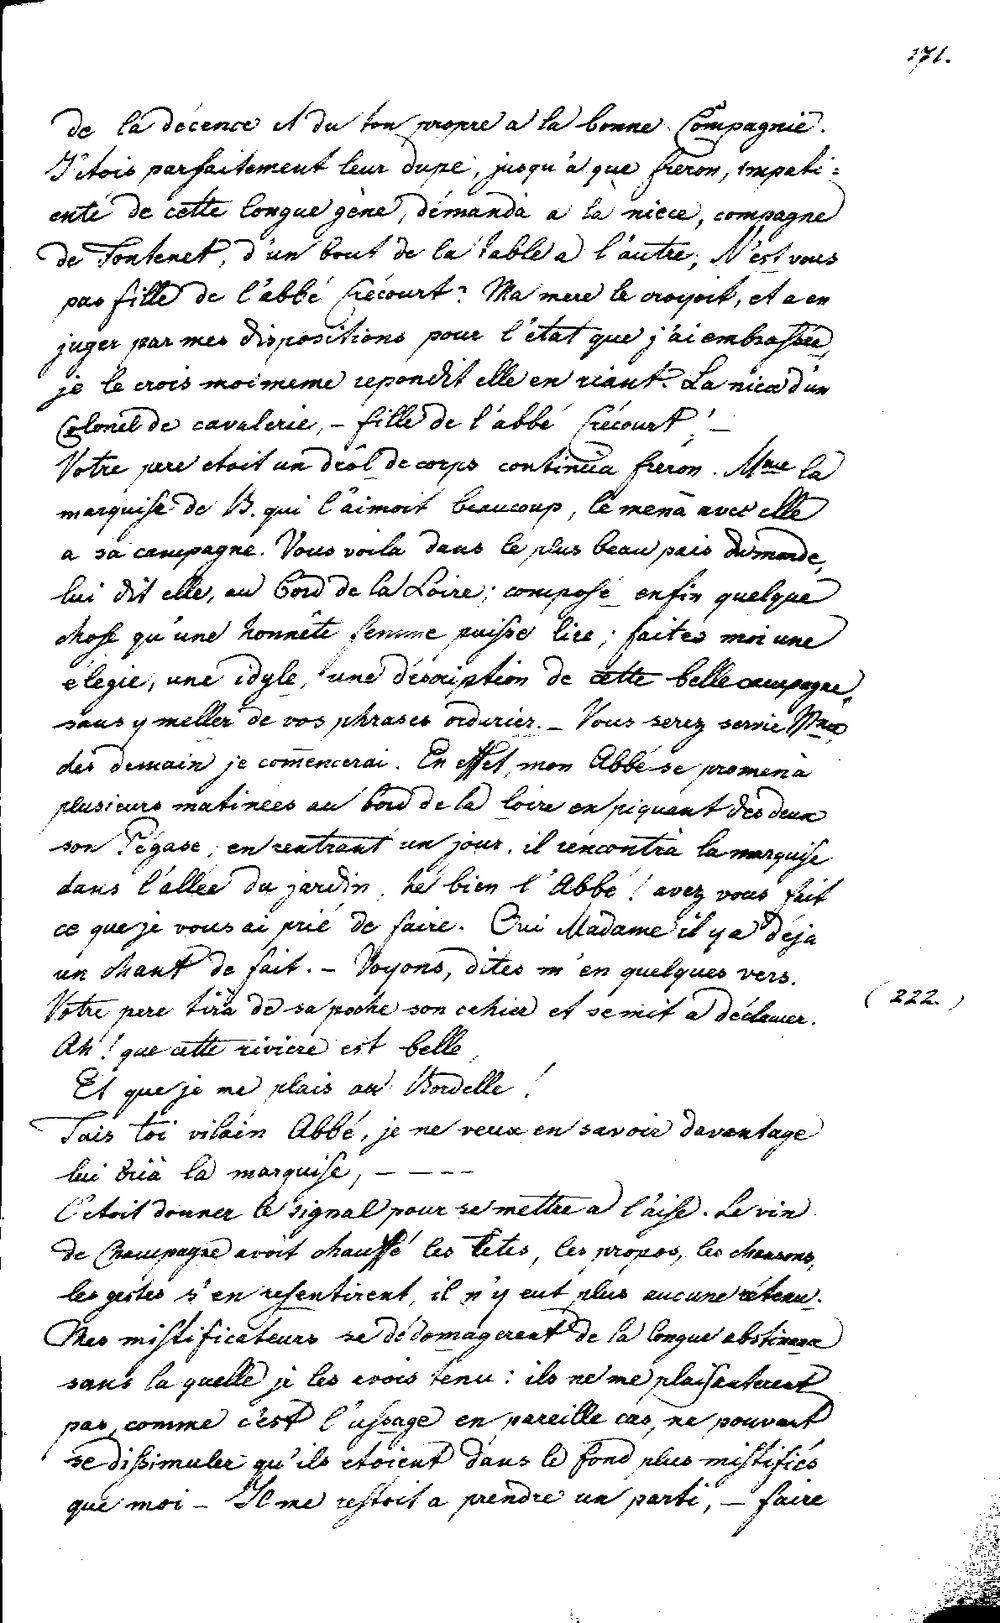 171.
de la décence et du ton propre a la bonne Compagnie.
J'étois parfaitement leur dupe, jusqu'à que freron, impati=
enté de cette longue gène, démanda a la niece, compagne
de Fontenet, d'un bout de la table a l'autre; N'est vous
pas fille de l'abbé Grécourt? Ma mere le croyoit, et a en
juger par mes dispositions pour l'état que j'ai embrassée,
je le crois moi meme repondit elle en riant. La niece d'un
Colonel de cavalerie, - fille de l'abbé Grécourt! -
Votre pere etoit un drôl de corps continua freron. Mme la
marquise de B. qui l'aimoit beaucoup, le mena avec elle
a sa campagne. Vous voila dans le plus beau pais du monde,
lui dit elle, au bord de la Loire; composé enfin quelque
chose qu'une honnête femme puisse lire; faites moi une
élegie, une idyle, une déscription de cette belle campagne,
sans y meller de vos phrases orduries. - Vous serez servie Mme,
des demain je comencerai. En effet, mon Abbé se promena
plusieurs matinées au bord de la loire en piquant des deux
son Pégase, en rentrant un jour, il rencontra la marquise
dans l'allée du jardin, hé bien l'Abbé! avez vous fait
ce que je vous ai prié de faire. Oui Madame il y a déja
un chant de fait. - Voyons, dites m'en quelques vers.
Votre pere tira de sa poche son cehier et se mit a déclamer.
(222.)
Ah! que cette riviere est belle,
Et que je me plais au Bordelle!
Tais toi vilain Abbé, je ne veux en savoir davantage
lui cria la marquise, - - - -
C'etoit donner le signal pour se mettre a l'aise. Le vin
de Champagne avoit chauffé les têtes, les propos, les chansons,
les gestes s'en resentirent, il n'y eut plus aucune rétenu.
Mes mistificateurs se dédomagerent de la longue abstinence
sans la quelle je les avois tenu: ils ne me plaisanterent
pas, comme c'est l'ussage en pareille cas, ne pouvant
se dissimuler qu'ils etoient dans le fond plus mistifiés
que moi - Il me restoit a prendre un parti, - faire